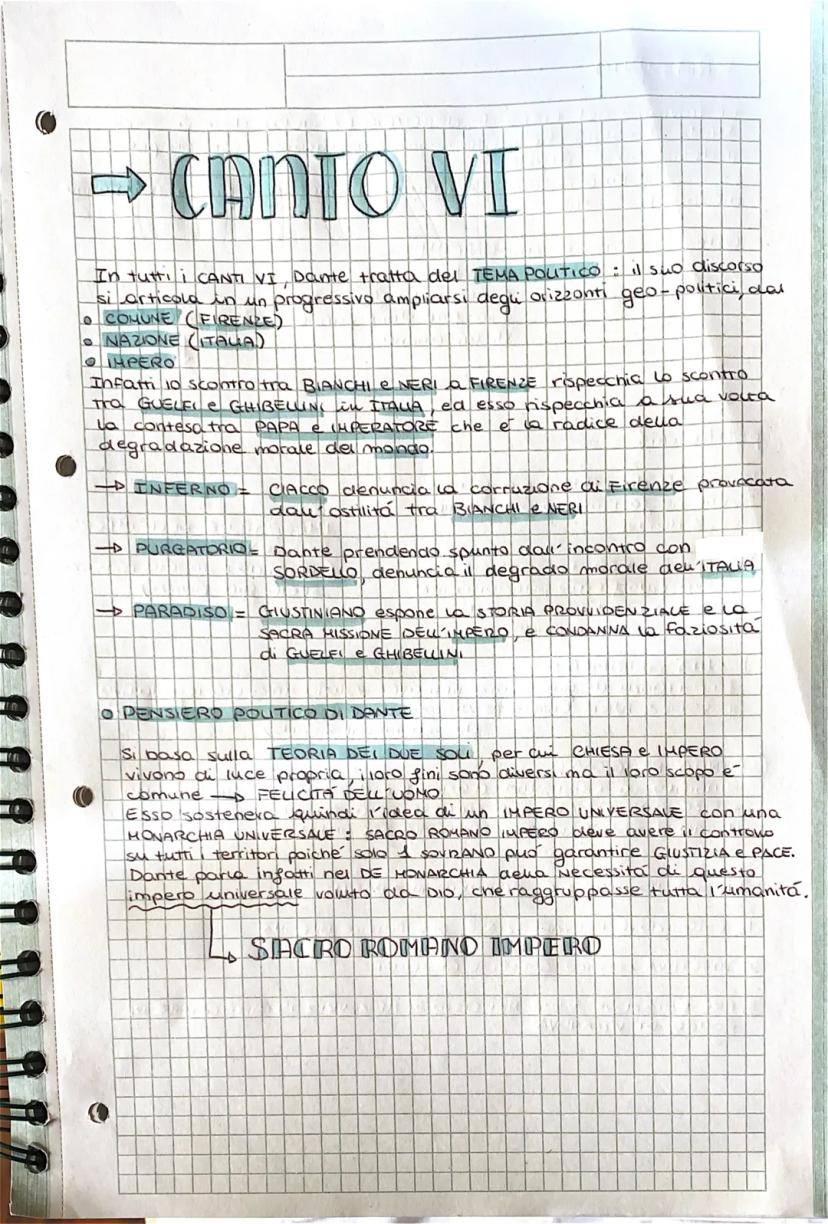 → CANTO VI
In tutti i CANTI VI, Dante tratta del TEMA POLITICO : il suo discorso
si articola in un progressivo ampliarsi degli orizzonti geo-politici, dal
• COMUNE (FIRENZE)
• NAZIONE (ITALIA)
• IMPERO
Infatti lo scontro tra BIANCHI e NERI a FIRENZE rispecchia lo scontro
tra GUELFI e GHIBELLINI in ITALIA, ed esso rispecchia a sua volta
la contesa tra PAPA e IMPERATORE che é la radice della
degradazione morale del mondo.
→ INFERNO = CIACCO denuncia la corruzione di Firenze provocata
dall'ostilitá tra BIANCHI e NERI
→ PURGATORIO = Dante prendendo spunto dall'incontro con
SORDELLO, denuncia il degrado morale dell'ITALIA
→ PARADISO = GIUSTINIANO espone la STORIA PROVVIDENZIALE e la
SACRA MISSIONE DELL'IMPERO, e CONDANNA la faziositá
di GUELFI e GHIBELLINI
• PENSIERO POLITICO DI DANTE
Si basa sulla TEORIA DEI DUE SOLI, per cui CHIESA e IMPERO
vivono di luce propria, i loro fini sono diversi ma il loro scopo é
comune → FELICITÁ DELL'UOMO
Esso sosteneva quindi l'idea di un IMPERO UNIVERSALE con una
MONARCHIA UNIVERSALE : SACRO ROMANO IMPERO deve avere il controllo
su tutti i territori poiché solo 1 SOVRANO puó garantire GIUSTIZIA e PACE.
Dante parla infatti nel DE MONARCHIA della Necessitá di questo
impero universale voluto da DIO, che raggruppasse tutta l'umanitá.
↳ SACRO ROMANO IMPERO